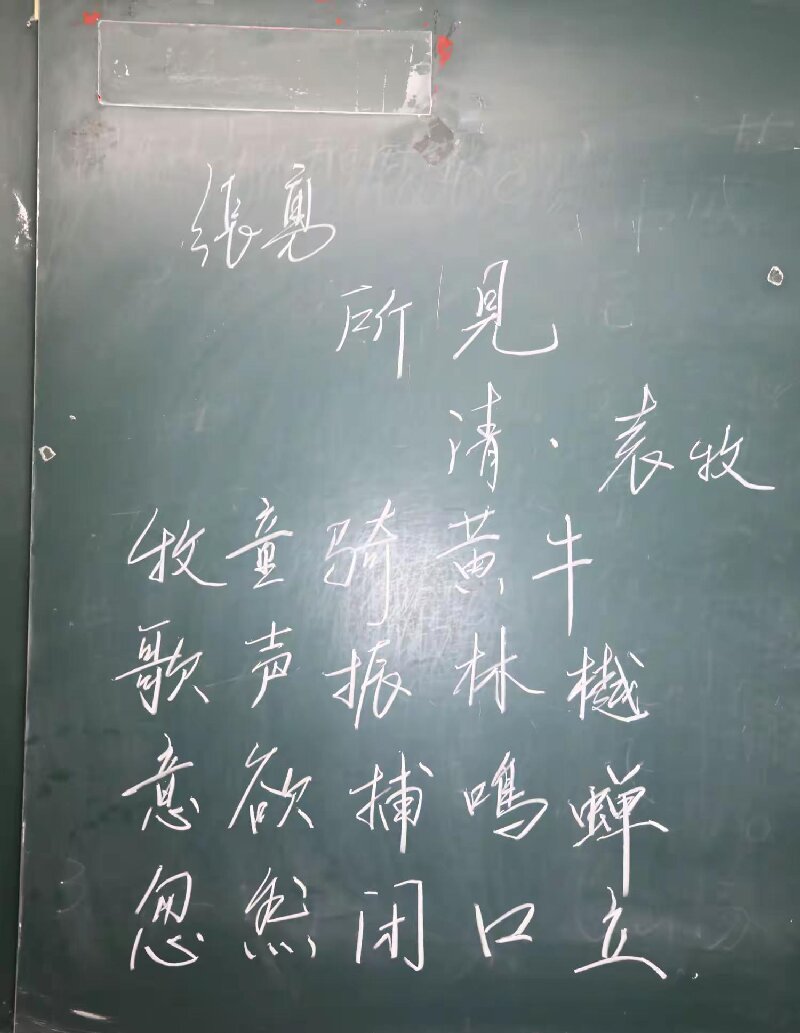 所见
清·袁牧
牧童骑黄牛
歌声振林樾
意欲捕鸣蝉
忽然闭口立